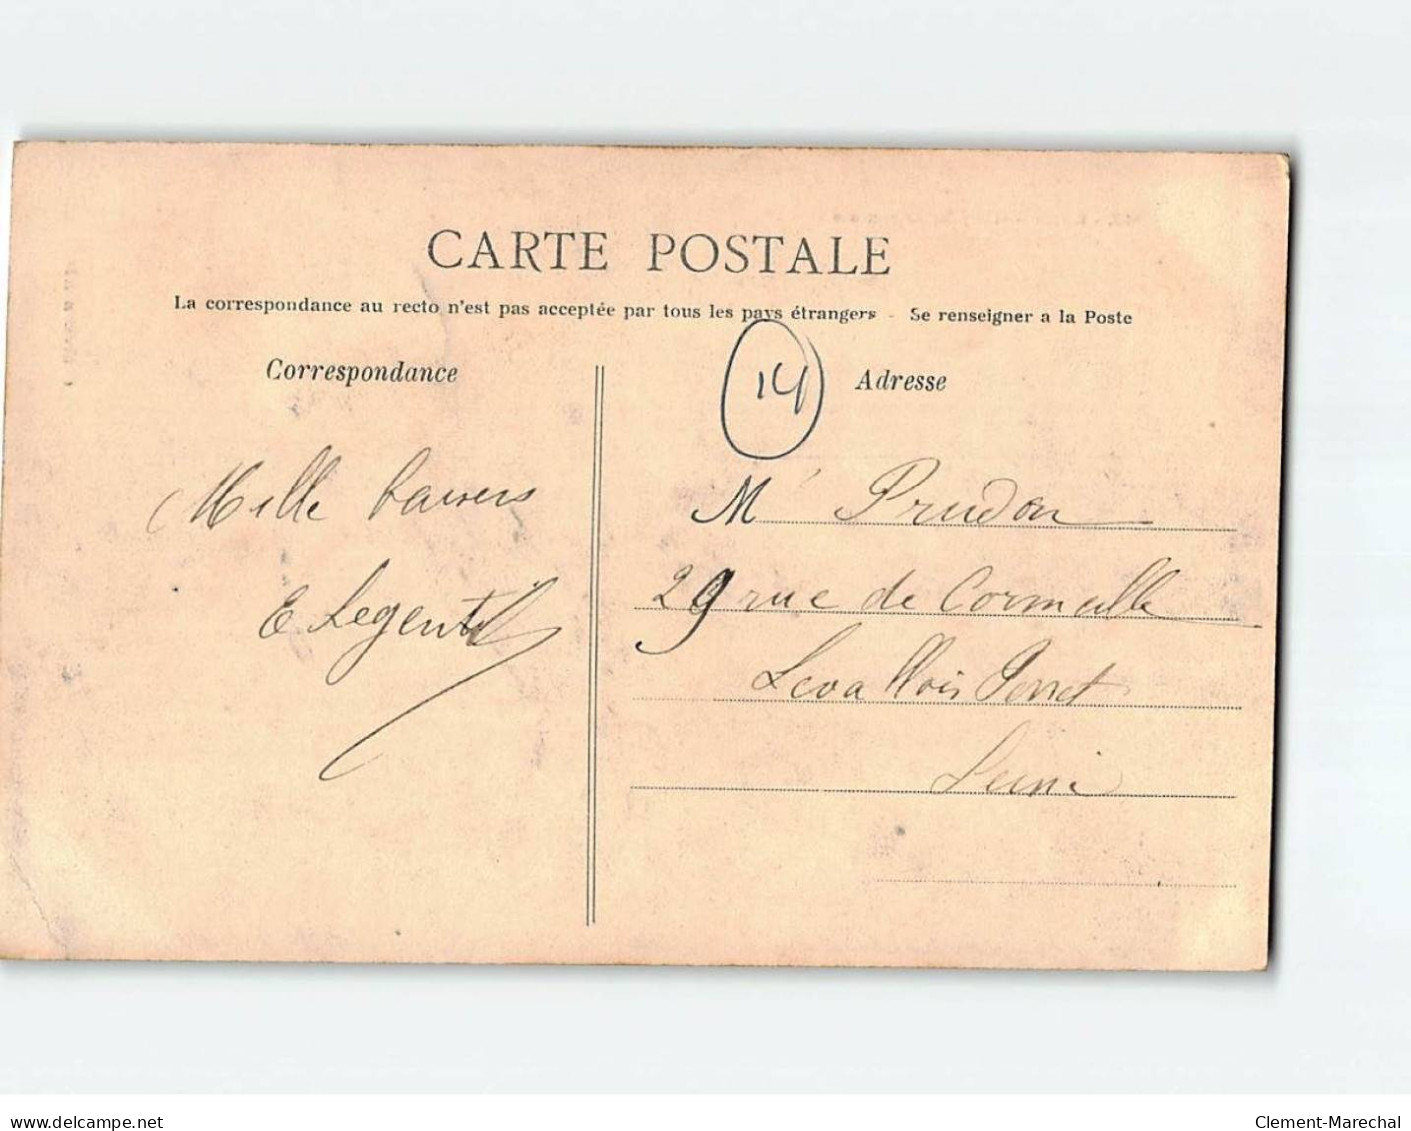 CARTE POSTALE
La correspondance au recto n'est pas acceptée par tous les pays étrangers - Se renseigner a la Poste
Correspondance
14
Adresse
Mille baisers
E Legentil
M Prudon
29 rue de Cormeille
Levallois Perret
Seine
www.delcampe.net
Clement-Marechal